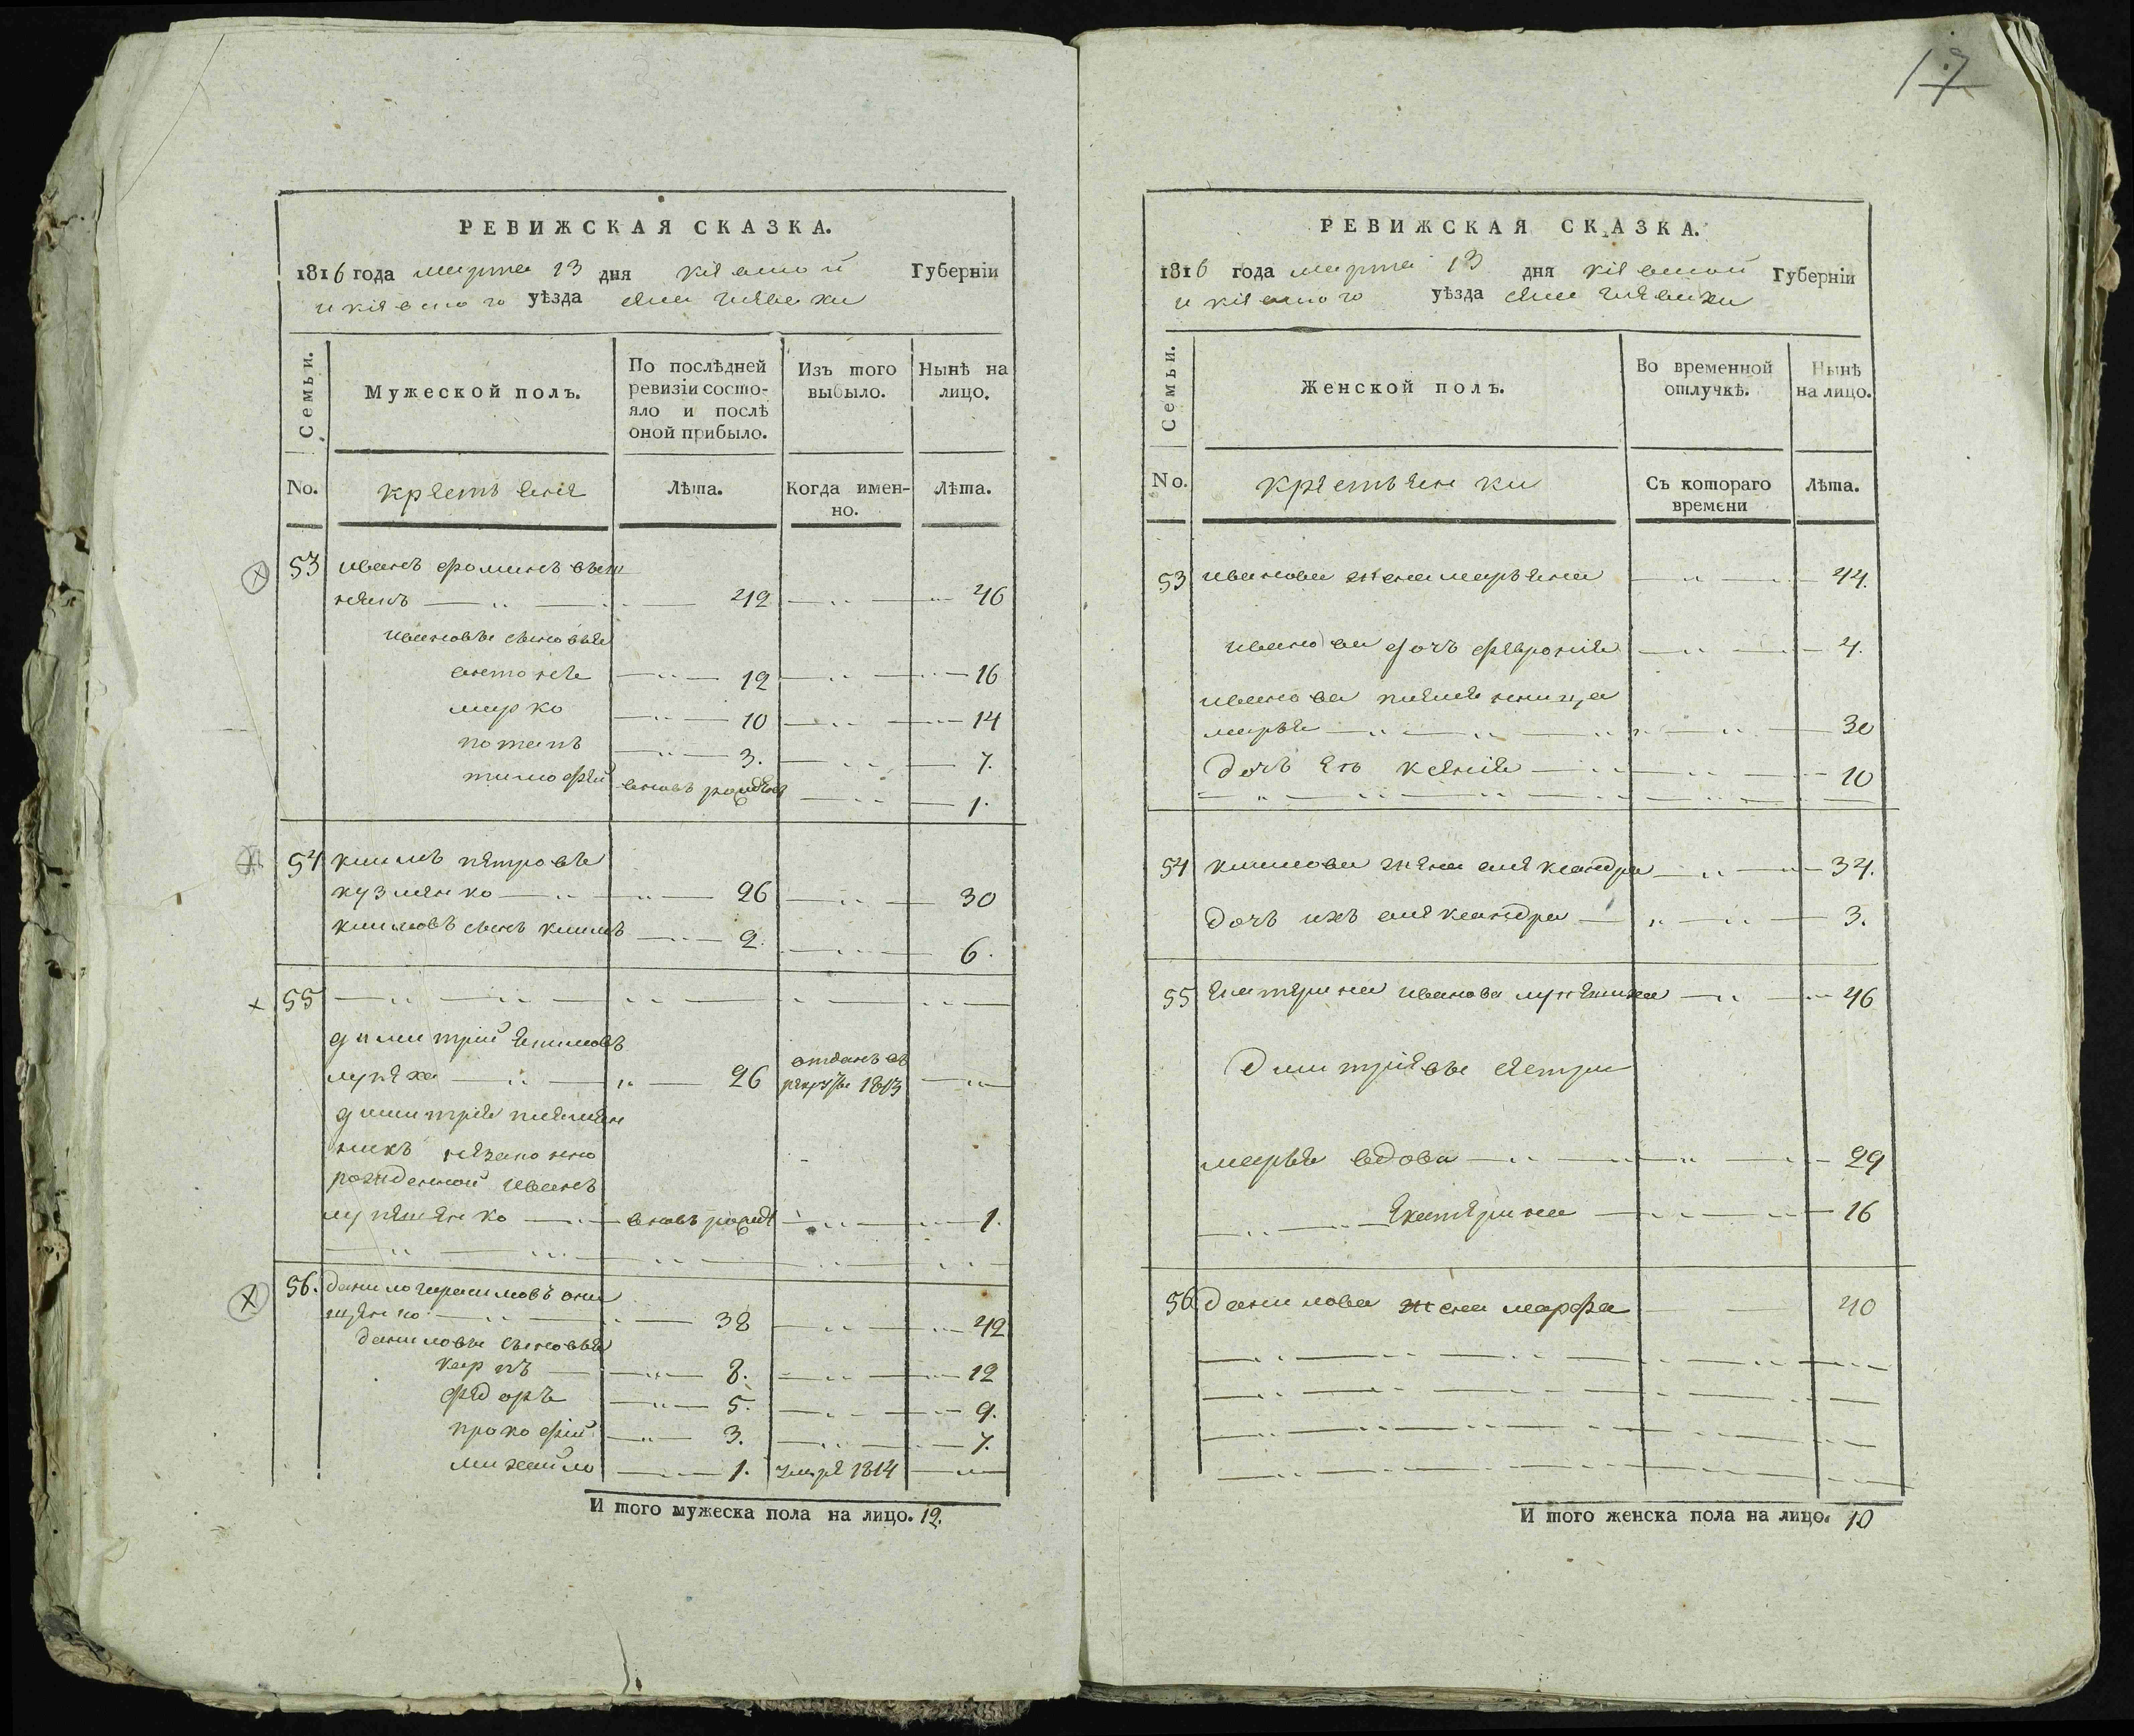 17
РЕВИЖСКАЯ СКАЗКА.
1816 года марта 13 дня кіевской Губерніи
и кіевского уѣзда села
Семьи.
Мужеской полъ.
По послѣдней ревизіи состо-
яло и послѣ
оной прибыло.
Изъ того
выбыло.
Нынѣ на
лицо.
No. крестьяне Лѣта. Когда имен-
но. Лѣта.
53 иванъ фоминъ
42 46
ивановы сыновья
антонъ 12 16
марко 10 14
потапъ 3. 7.
тимофей вновь рожденъ 1.
54 климъ петровъ
кузменко 26 30
климовъ сынъ климъ 2. 6.
55
димитрій екимовъ
лупеха 26 отданъ въ
рекруты 1813
димитрія племян
никъ незаконно
рожденной иванъ
вновь рожд 1.
56. данило гарасимовъ они
щенко 38 42
даниловы сыновья
карпъ 8. 12
федоръ 5. 9.
прокофій 3. 7.
михайло 1. умре 1814
И того мужеска пола на лицо. 12.
РЕВИЖСКАЯ СКАЗКА.
1816 года марта 13 дня кіевской Губерніи
и кіевского уѣзда села
Семьи.
Женской полъ.
Во временной
отлучкѣ.
Нынѣ
на лицо.
No. крестьянки Съ котораго
времени Лѣта.
53 иванова жена марьяна 44.
иванова дочъ февронія 4.
иванова племенница
марья 30
дочъ ея ксенія 10
54 климова жена александра 34.
дочъ ихъ александра 3.
55 екатерина иванова 46
дмитріевы сестри
марья вдова 29
екатерина 16
56 данилова жена марфа 40
И того женска пола на лицо. 10